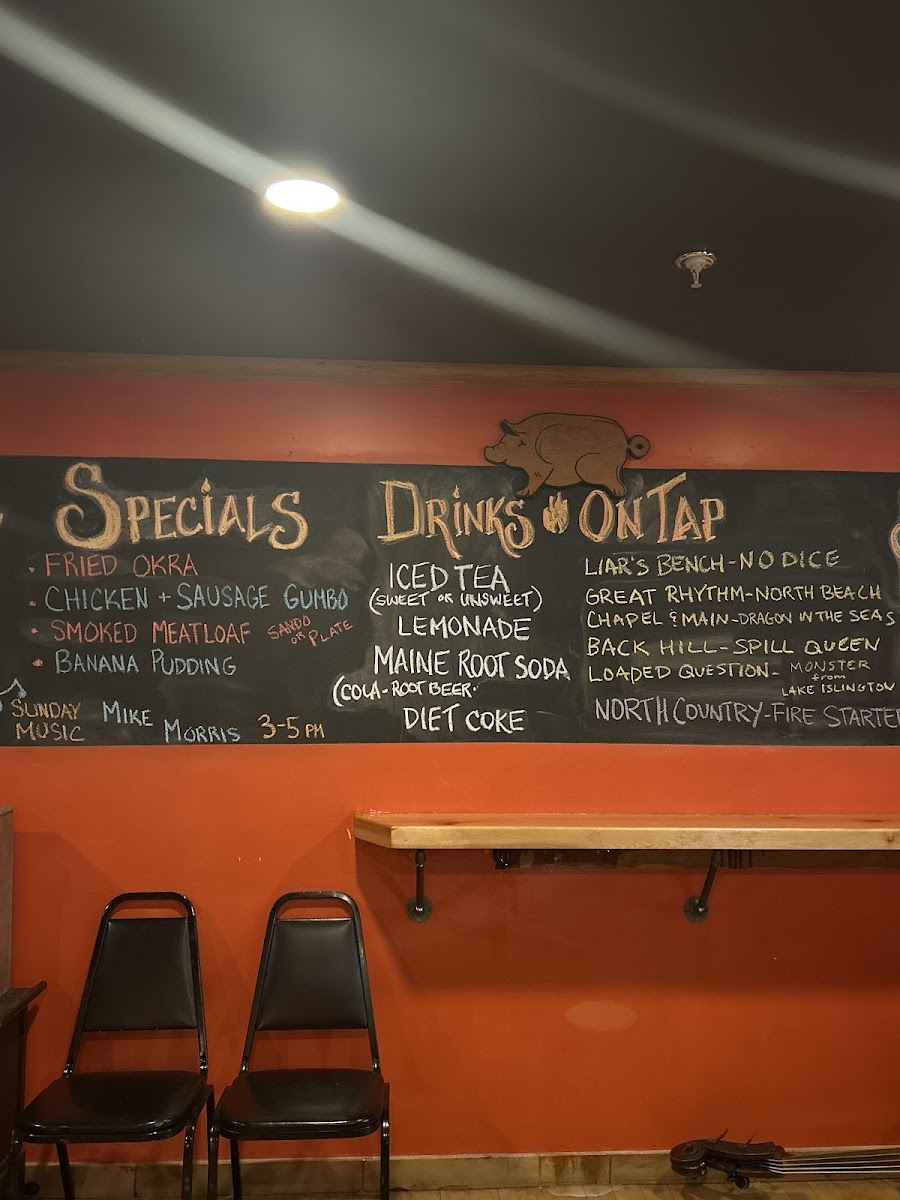 SPECIALS
• FRIED OKRA
• CHICKEN + SAUSAGE GUMBO
• SMOKED MEATLOAF SANDO OR PLATE
• BANANA PUDDING
SUNDAY MUSIC MIKE MORRIS 3-5 PM
DRINKS ON TAP
ICED TEA
(SWEET OR UNSWEET)
LEMONADE
MAINE ROOT SODA
(COLA - ROOT BEER
DIET COKE
LIAR'S BENCH - NO DICE
GREAT RHYTHM - NORTH BEACH
CHAPEL & MAIN - DRAGON IN THE SEAS
BACK HILL - SPILL QUEEN
LOADED QUESTION - MONSTER
from
LAKE ISLINGTON
NORTH COUNTRY - FIRE STARTER